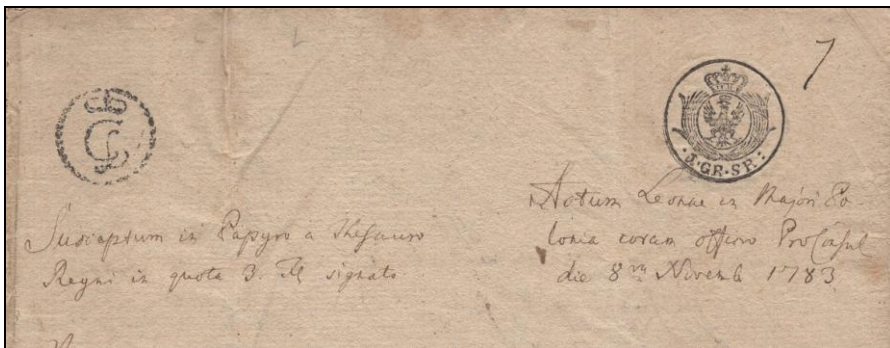 7
3·GR·SR:
Susceptum in Papyro a Thesauro
Regni in quota 3. signato
Actum Leonae in Majori Po
lonia coram officio ProConsul
die 8 Novemb 1783